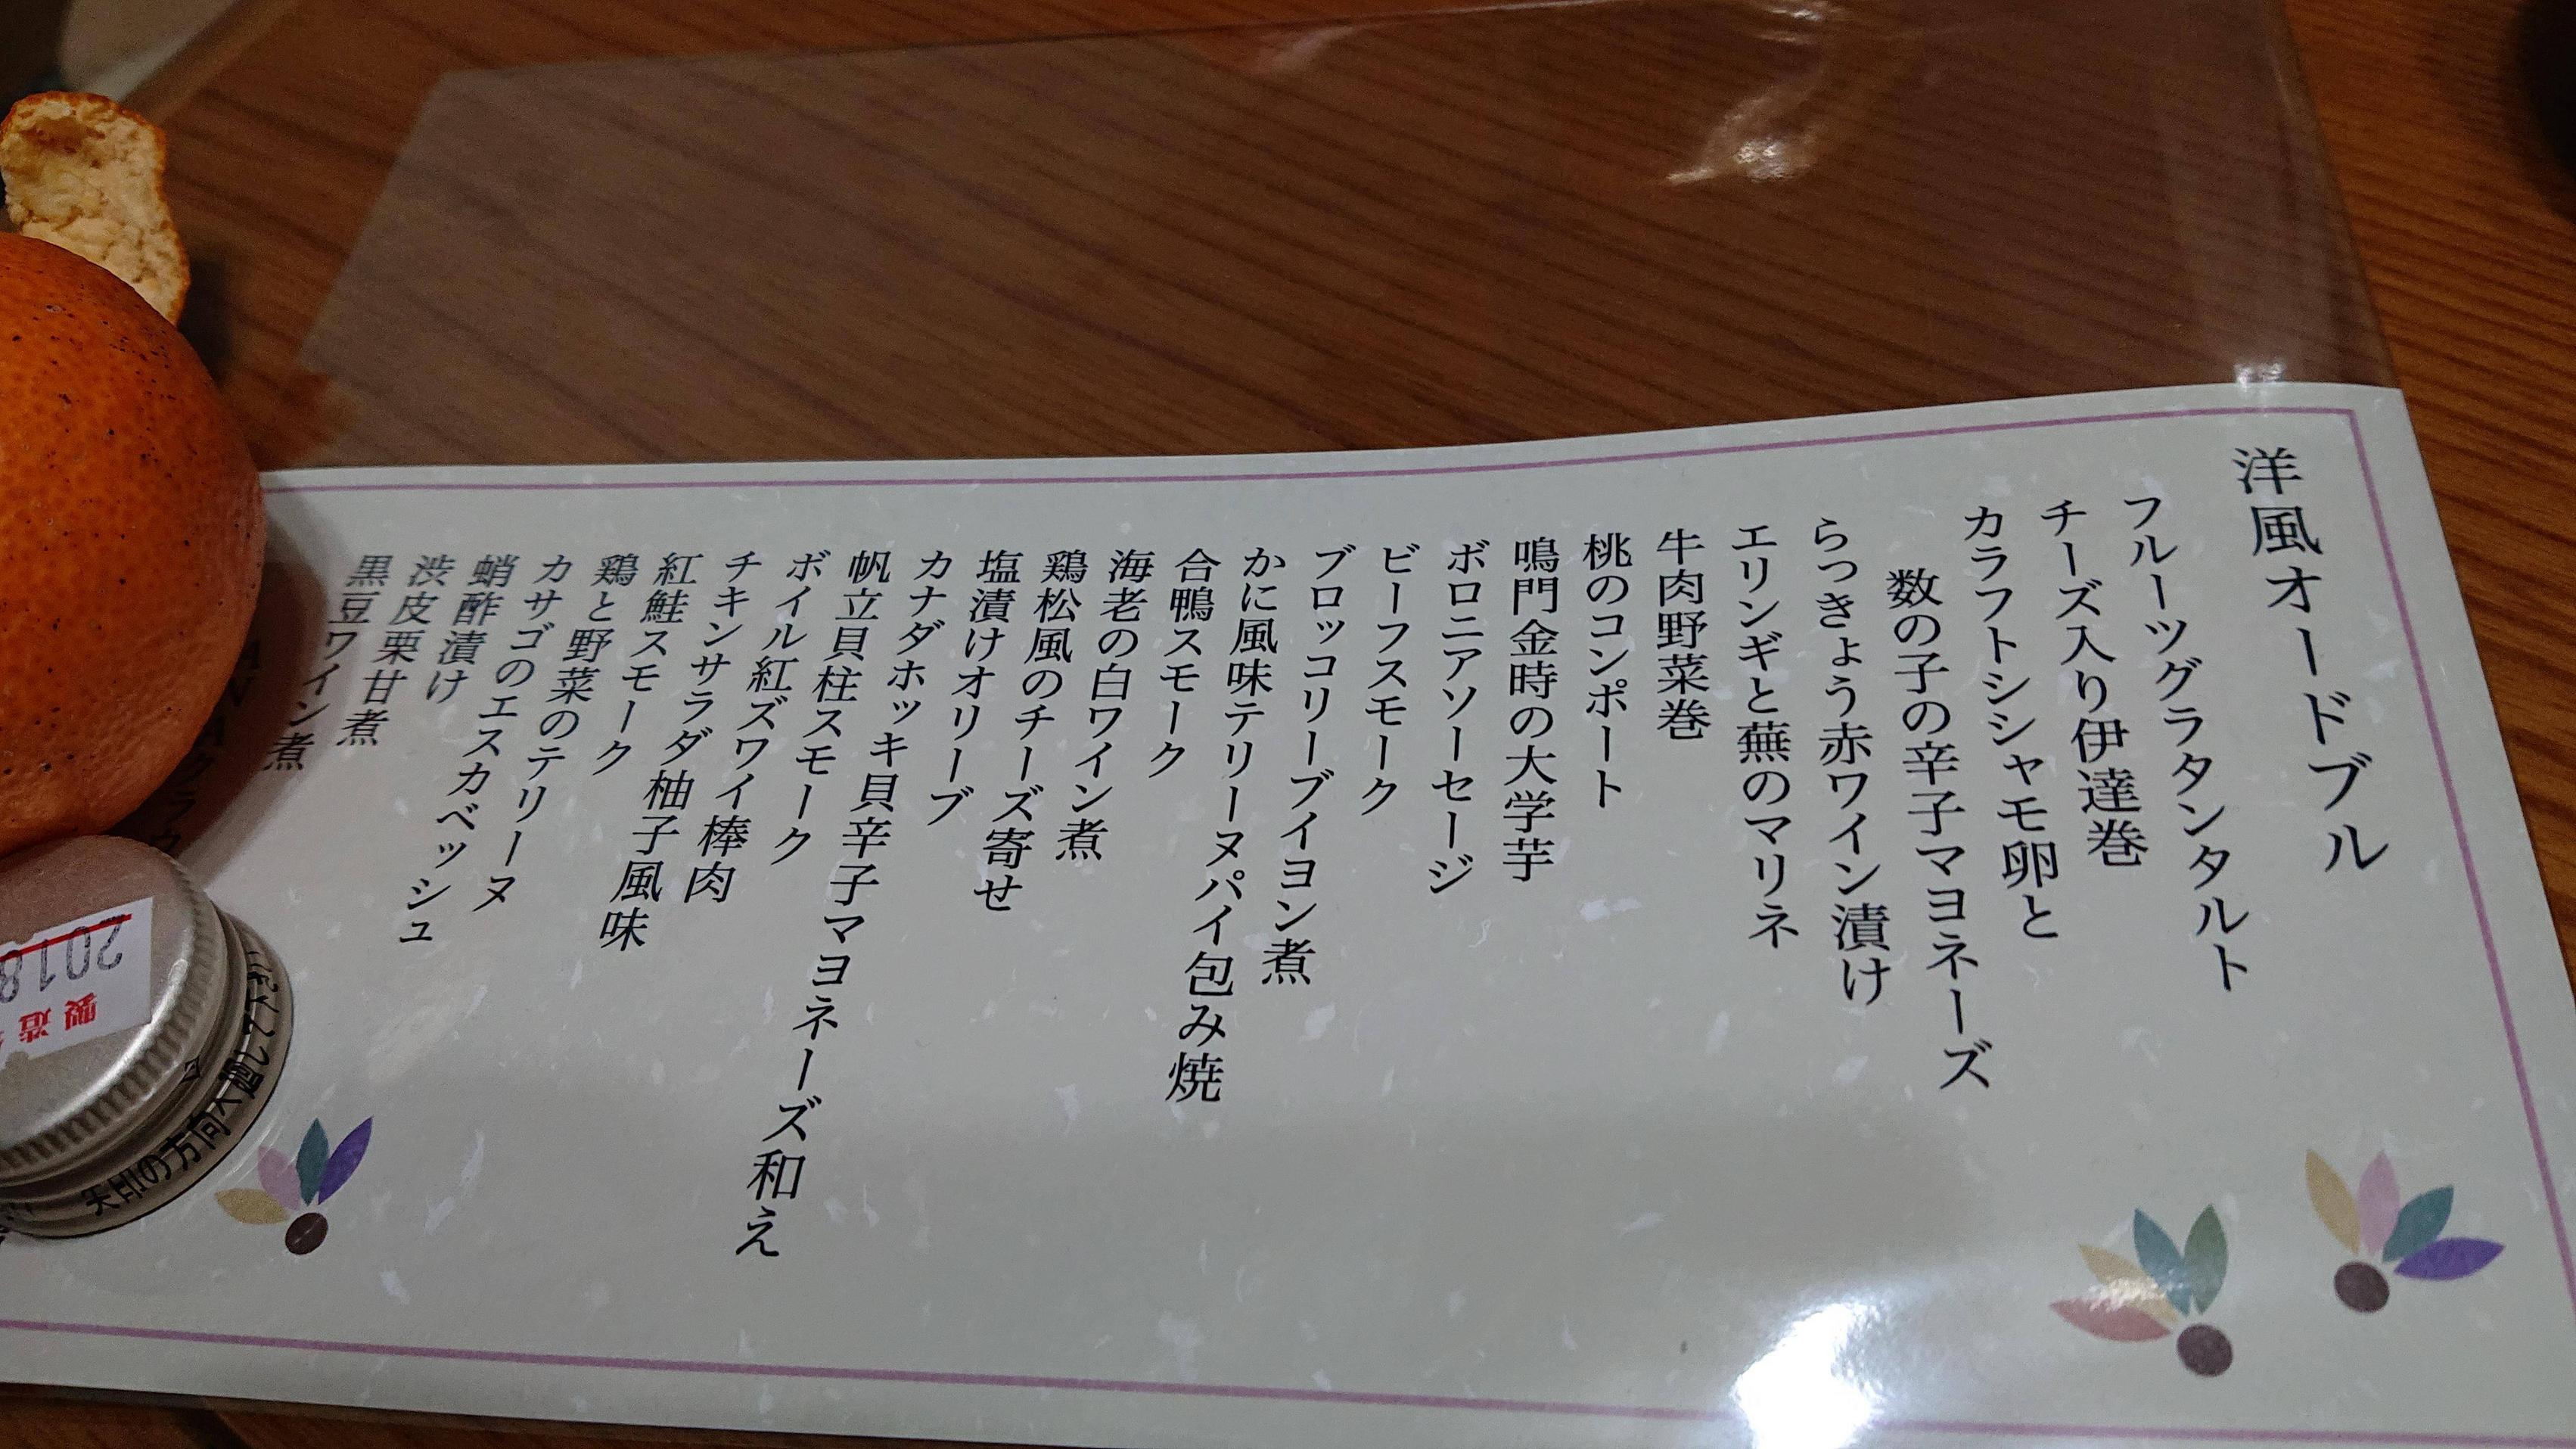 洋風オードブル
フルーツグラタンタルト
チーズ入り伊達巻
カラフトシシャモ卵と
数の子の辛子マヨネーズ
らっきょう赤ワイン漬け
エリンギと蕪のマリネ
牛肉野菜巻
桃のコンポート
鳴門金時の大学芋
ボロニアソーセージ
ビーフスモーク
ブロッコリーブイヨン煮
かに風味テリーヌパイ包み焼
合鴨スモーク
海老の白ワイン煮
鶏松風のチーズ寄せ
塩漬けオリーブ
カナダホッキ貝辛子マヨネーズ和え
帆立貝柱スモーク
ボイル紅ズワイ棒肉
チキンサラダ柚子風味
紅鮭スモーク
鶏と野菜のテリーヌ
カサゴのエスカベッシュ
蛸酢漬け
渋皮栗甘煮
黒豆ワイン煮
2018
製造
矢印の方向へ廻して